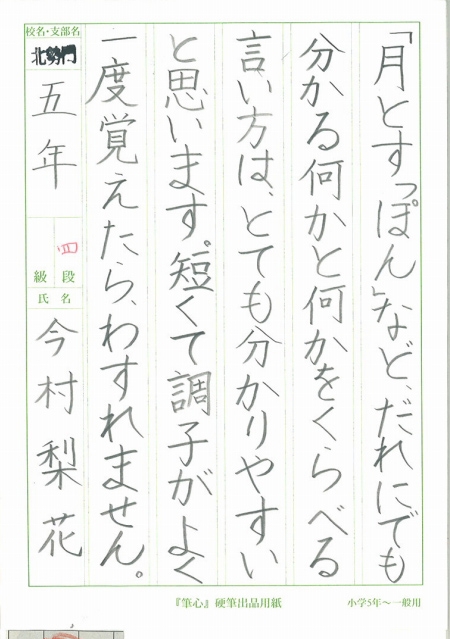 「月とすっぽん」など、だれにでも
分かる何かと何かをくらべる
言い方は、とても分かりやすい
と思います。短くて調子がよく
一度覚えたら、わすれません。
校名・支部名
北勢門
五年
四
級 段
氏 名
今村梨花
『筆心』硬筆出品用紙
小学5年~一般用